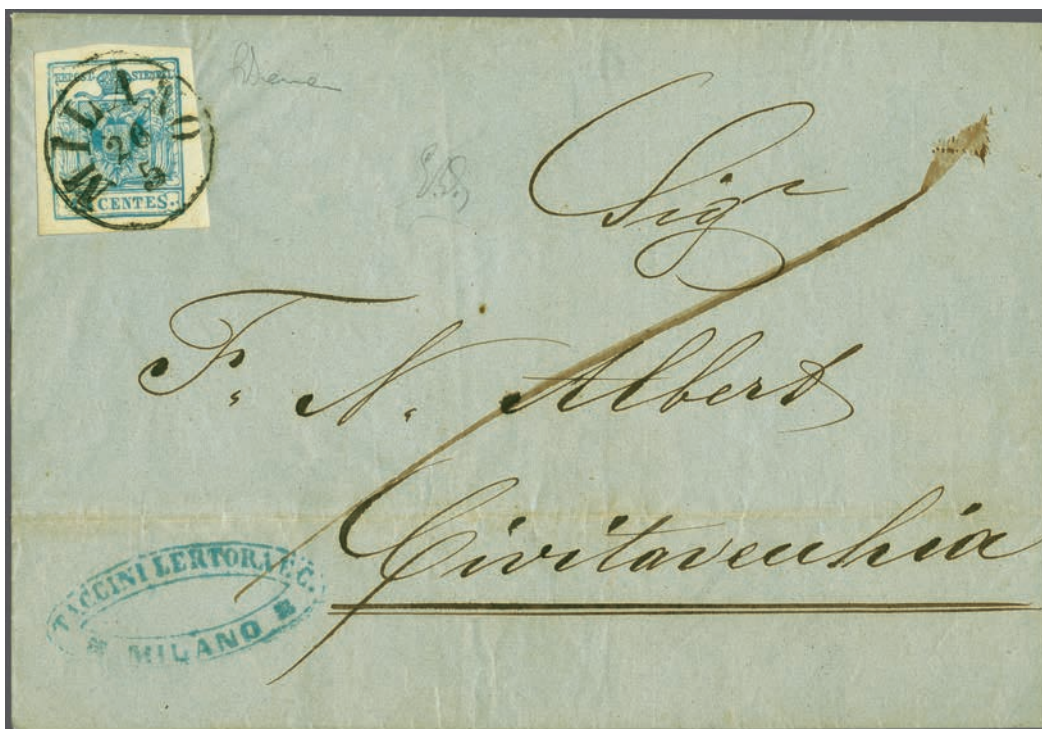 MILANO
26
5
CENTES.
Sigr
F. N. Albert
Civitavecchia
TACCINI LERTORA E C.
MILANO